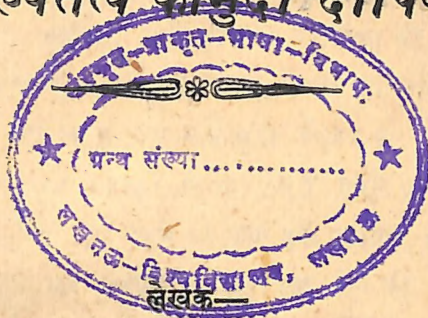 कौमुदी
संस्कृत-प्राकृत-भाषा-विभागः
ग्रन्थ संख्या..............
लखनऊ-विश्वविद्यालय, लखनऊ
लेखक—